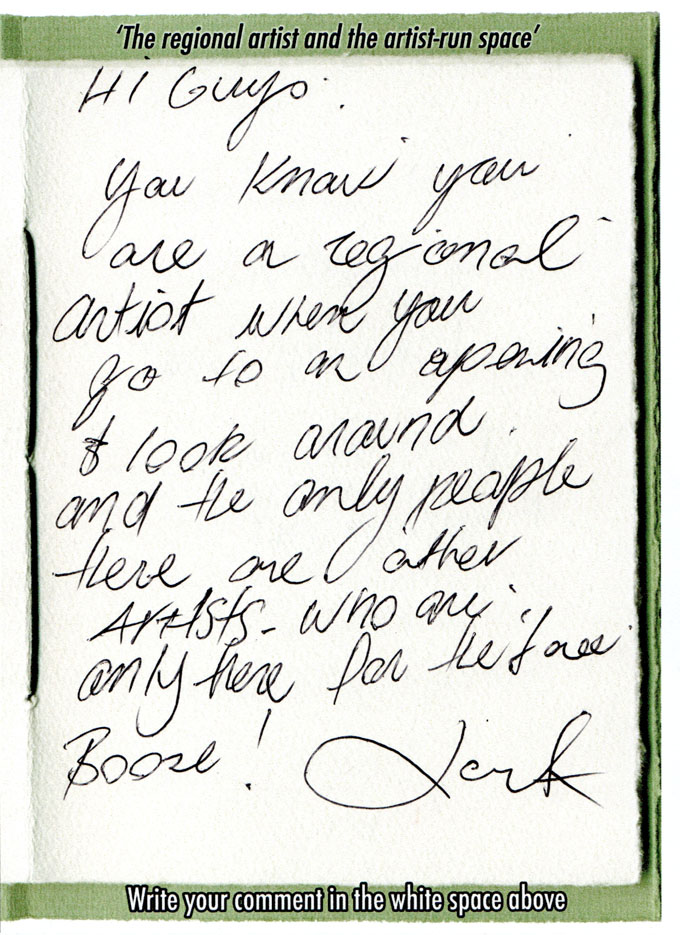 'The regional artist and the artist-run space'
Hi Guys.
You Know you
are a regional
artist when you
go to an opening
& look around.
and the only people
there are other
ARtISTS - who are
only there for the free
Booze!
Write your comment in the white space above